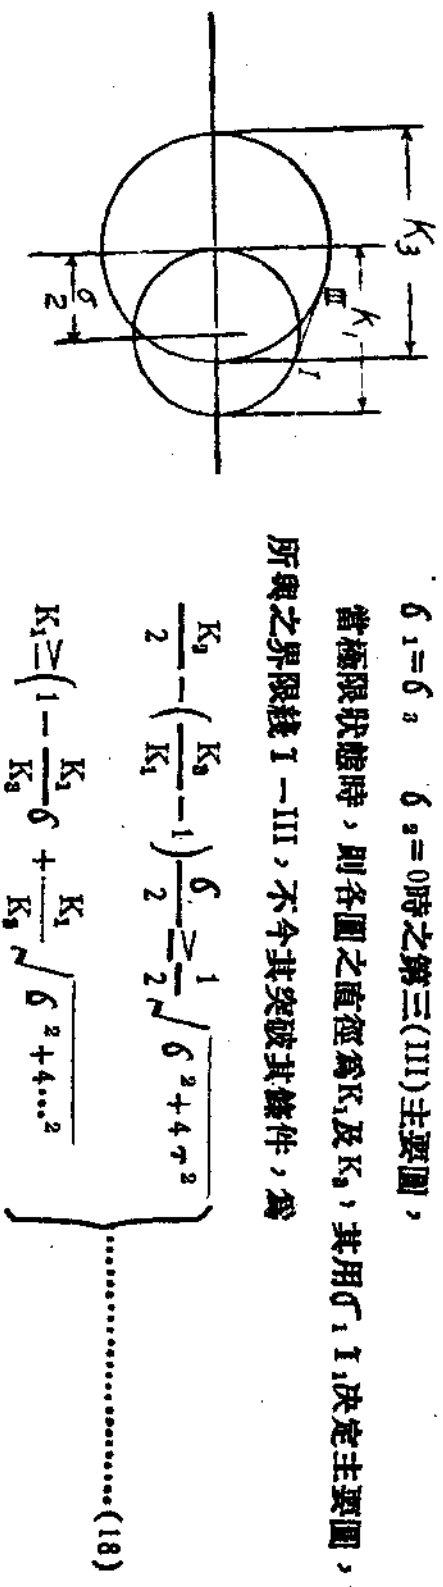 K₃
K₁
III
I
σ
2
б₁=б₃ б₂=0時之第三(III)主要圓,
當極限狀態時,則各圓之直徑爲K₁及K₃,其用σ₁ I₁決定主要圓,
所與之界限綫 I-III,不令其突破其條件,爲
K₃/2 - (K₃/K₁ - 1) б/2 ≥ 1/2 √б²+4τ²
K₁ ≥ (1 - K₁/K₃ б + K₁/K₃ √б²+4...²
(18)